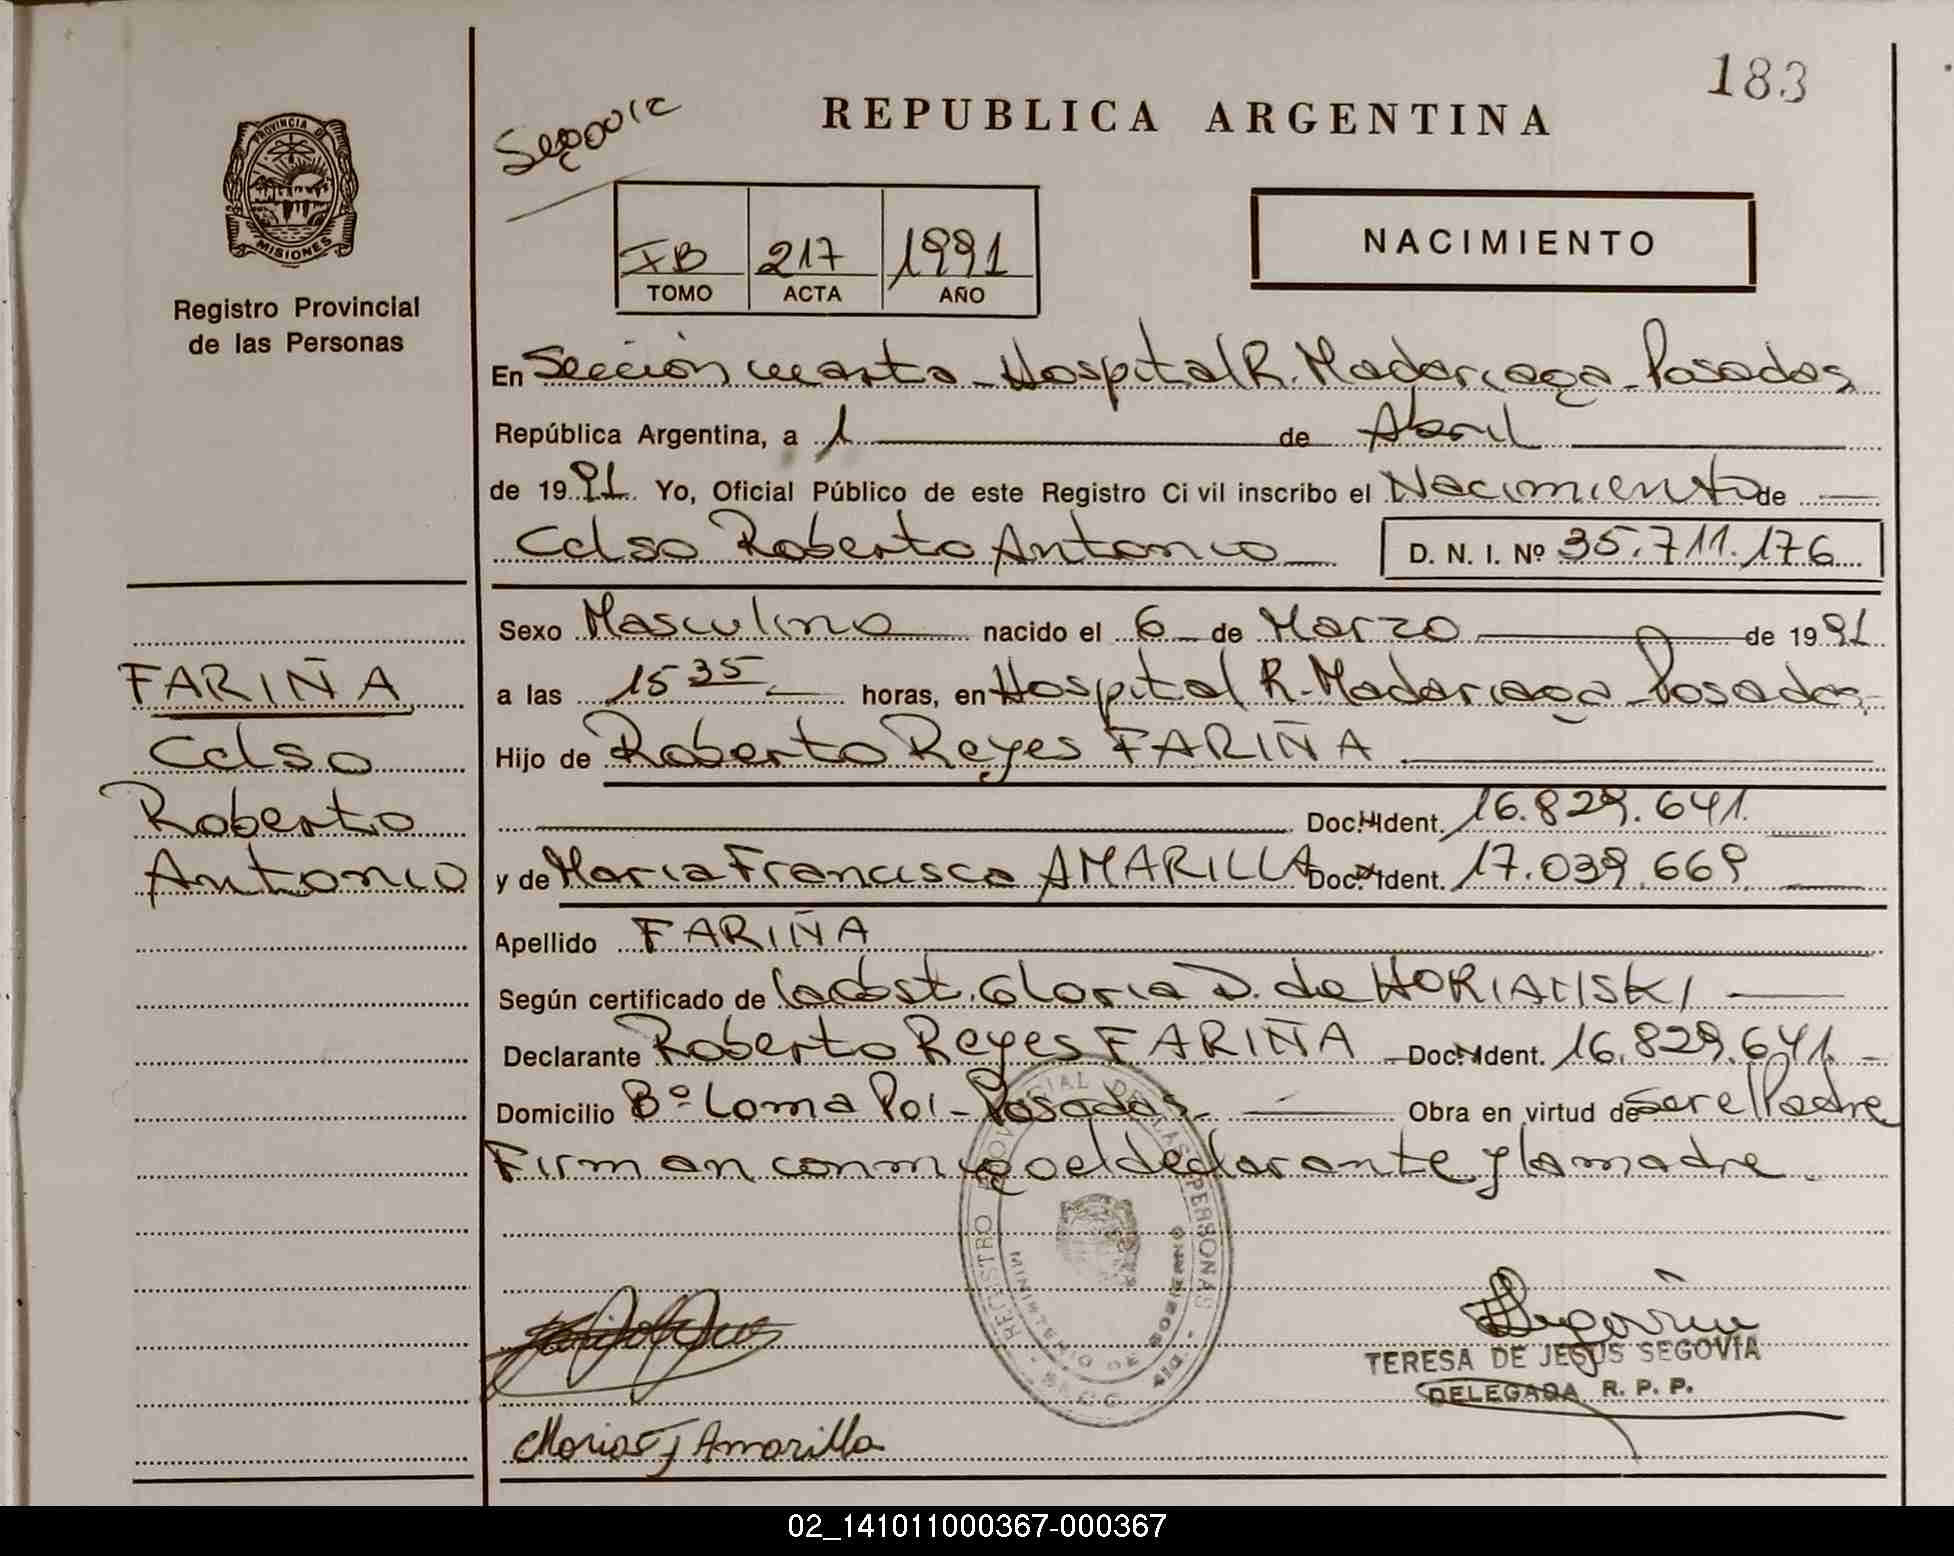 183
Segovia
REPUBLICA ARGENTINA
PROVINCIA DE
MISIONES
Registro Provincial
de las Personas
IB 217 1991
TOMO ACTA AÑO
NACIMIENTO
En Sección cuarta - Hospital R. Madariaga - Posadas
República Argentina, a 1 de Abril
de 1991. Yo, Oficial Público de este Registro Ci vil inscribo el Nacimiento de
Celso Roberto Antonio D. N. I. Nº 35.711.176
Sexo Masculino nacido el 6 de Marzo de 1991
a las 15 35 horas, en Hospital R. Madariaga - Posadas
FARIÑA
Celso
Roberto
Antonio
Hijo de Roberto Reyes FARIÑA
Doc. Ident. 16.829.641.
y de Maria Francisca AMARILLA Doc. Ident. 17.039.669
Apellido FARIÑA
Según certificado de la Obst. Gloria D. de HORIANSKI
Declarante Roberto Reyes FARIÑA - Doc. Ident. 16.829.641. -
Domicilio Bº Loma Poi - Posadas - Obra en virtud de ser el Padre
Firman conmigo el declarante y la madre.
REGISTRO PROVINCIAL DE LAS PERSONAS
MINISTERIO DE GOBIERNO
TERESA DE JESUS SEGOVIA
DELEGADA R. P. P.
Maria F Amarilla
02_141011000367-000367